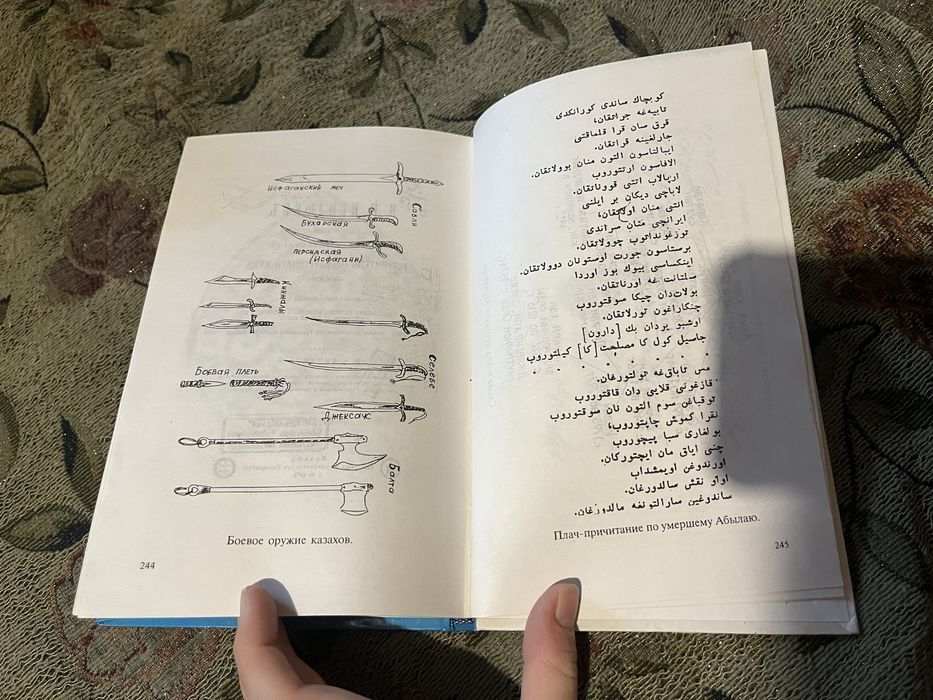 Исфаганский меч
Сабли
БУХАРСКАЯ
ПЕРСИДСКАЯ
(Исфагани)
Кинжалы
Селебе
Боевая плеть
Джексаус
Балта
Боевое оружие казахов.
244
كوبچاك ساندی كورانكدی
تابيهغه جراتقان،
قرق سان قرا قلماقتی
جارلغينه قراتقان.
ايبالتاسون التون منان بوولاتقان.
الافاسون ارتتوروب
اريالاب اتتی قووناتقان.
لاباچی ديكان بر ايلنی
التی منان اولاتقان،
ايرانچی متان سراندی
توزغونداتوب چوولاتقان.
برستاسون جورت اوستونان دوولاتقان.
اينكساسی بيوك بوز اوردا
سلتانت غه اورناتقان.
بولاتدان چيكا سوقتوروب
چنكاراغون تورلاتقان.
اوشبو يردان بك [دارون]
جاسيل كول كا مصلحت [كا] كيلتوروب
. . . . . . . .
مس تاباقغه تولتورغان.
قازغونی قلايی دان قاقتوروب
توقباغن سوم التون نان سوقتوروب
نقرا كموش چاپتوروب،
بولغاری سبا پيچوروب
چنی اياق مان ايچتوركان.
اورندوغن اويمشداب
اواو نقش سالدورغان.
ساندوغين سارالتونغه مالدورغان.
Плач-причитание по умершему Абылаю.
245